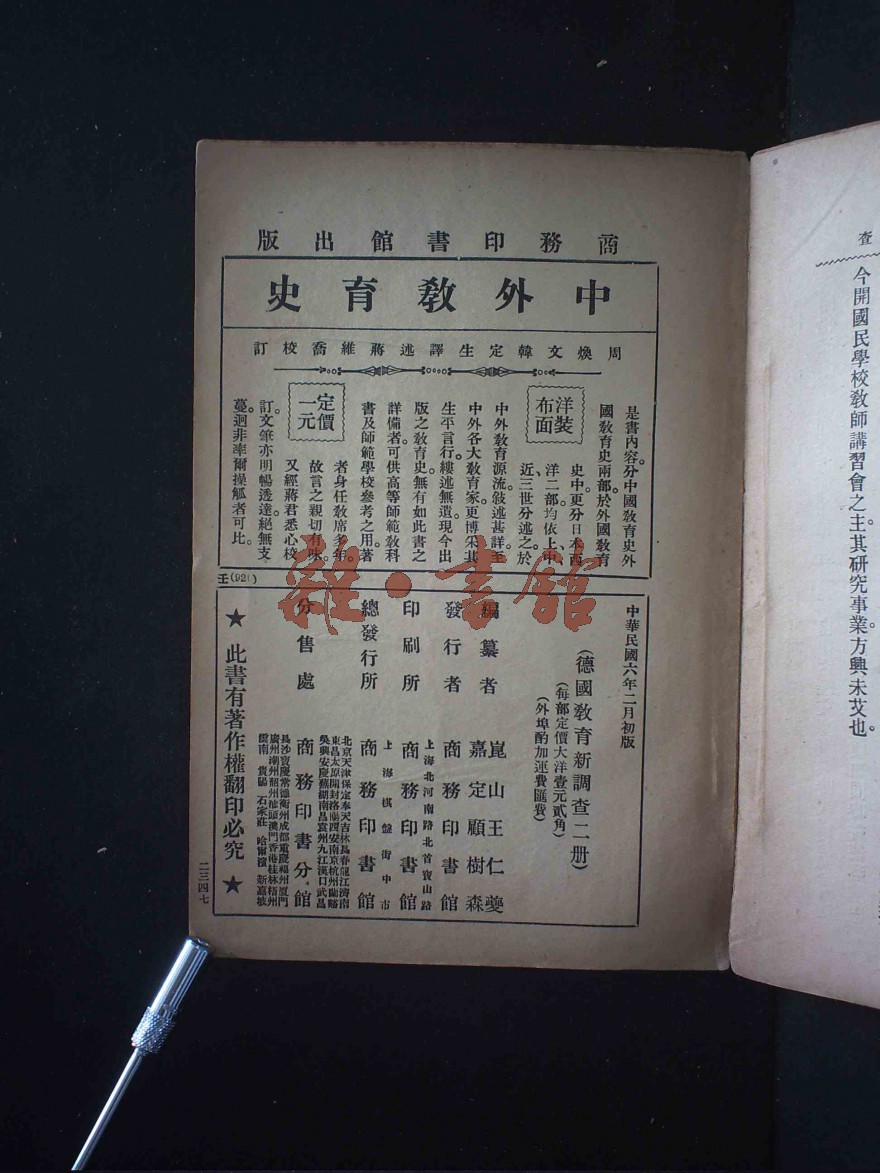 查
今開國民學校教師講習會之主。其研究事業。方興未艾也。
商務印書館出版
中外教育史
周煥文韓定生譯述蔣維喬校訂
洋裝布面
定價一元
是書內容。分中國教育史外
國教育史兩部。於外國教育
史中。更分日本西
洋二部。均依上、中、
近三世分述之。於
中外教育源流。敍述甚詳。至
中外各大教育家。更博采其
生平言行。縷述無遺。現今出
版之教育史。無有如此書之
詳備者。可供高等師範教科
書及師範學校參考之用。著
者身任教席多年。
故言之親切有味。
又經蔣君悉心校
訂。文筆亦明暢透達。絕無支
蔓。迥非率爾操觚者可比。
王(921)
中華民國六年二月初版
(德國教育新調查二册)
(每部定價大洋壹元貳角)
(外埠酌加運費匯費)
編纂者 崑山王仁夔
嘉定顧樹森
發行者 商務印書館
上海北河南路北首寶山路
印刷所 商務印書館
上海棋盤街中市
總發行所 商務印書館
北京天津保定奉天吉林長春龍江濟南
東昌太原開封洛陽西安南京杭州蘭谿
吳興安慶蕪湖南昌袁州九江漢口武昌
分售處 商務印書分館
長沙寶慶常德衡州成都重慶福州廈門
廣州潮州韶州汕頭澳門香港桂林梧州
雲南 貴陽 石家莊 哈爾濱 新嘉坡
★此書有著作權翻印必究★
二三四七
雜·書館